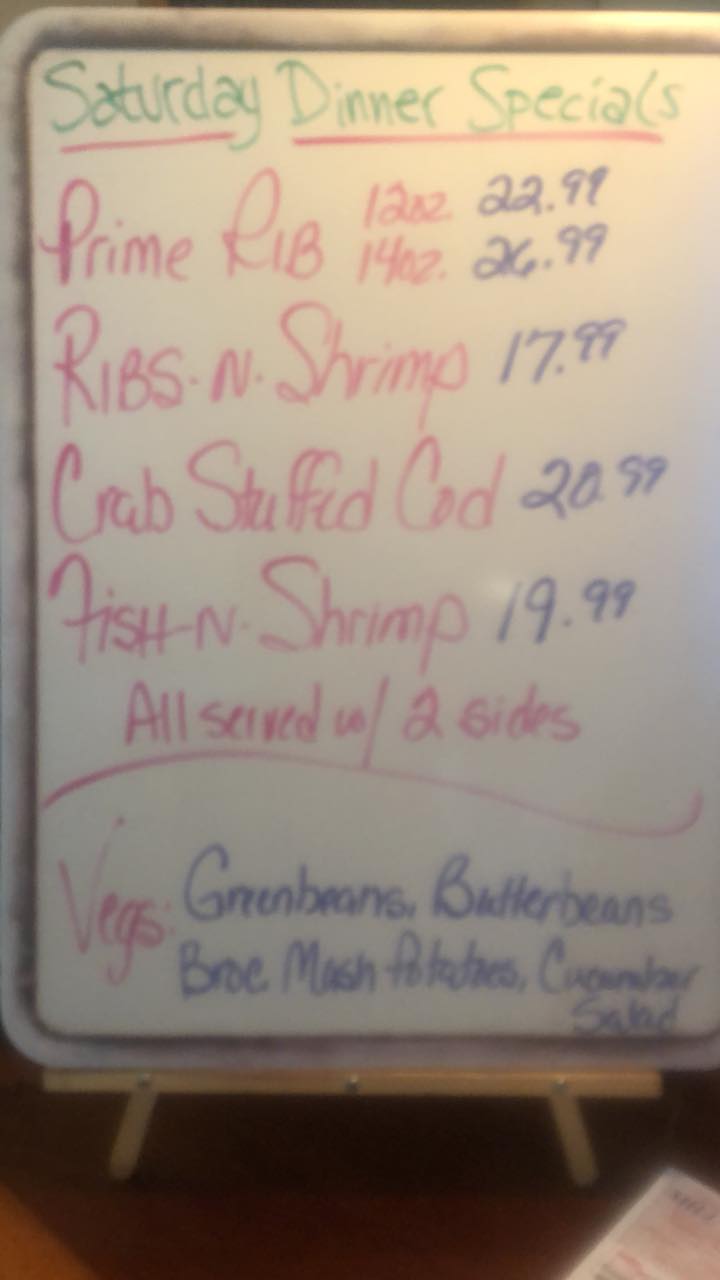 Saturday Dinner Specials
Prime RIB 12oz. 22.99
14oz. 26.99
RIBS-N-Shrimp 17.99
Crab Stuffed Cod 20.99
FISH-N-Shrimp 19.99
All served w/ 2 sides
Vegs: Greenbeans, Butterbeans
Broc. Mash Potatoes, Cucumber
Salad